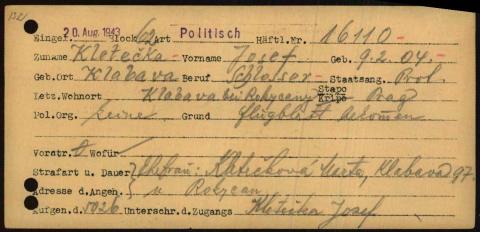 132/
Eingel. 20. Aug. 1943 Block 62 Art Politisch Häftl.Nr. 16110 -
Zuname Kletečka - Vorname Josef Geb. 9.2.04. -
Geb.Ort Klabava Beruf Schlosser - Staatsang. Prot.
Letz.Wohnort Klabava bei Rokycany Stapo Kripo Prag
Pol.Org. keine Grund Flugblatt
Vorstr. Wofür
Strafart u. Dauer Ehefrau: Kletečková Marta, Klabava 97.
Adresse d.Angen. Rokycan
Aufgen.d. 5026 Unterschr.d.Zugangs Kletečka Josef